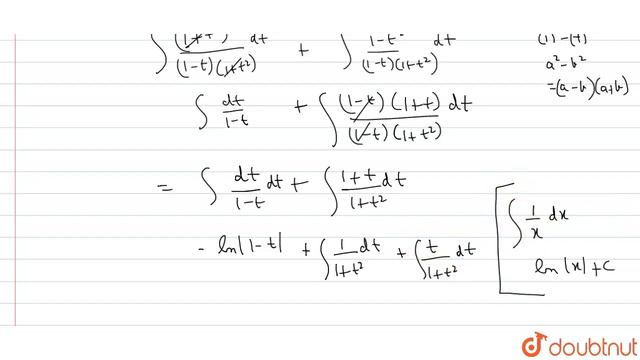 ∫ (1+t²) dt / (1-t)(1+t²) + ∫ 1-t² / (1-t)(1+t²) dt
a²-b²
=(a-b)(a+b)
∫ dt/1-t + ∫ (1-t)(1+t) dt / (1-t)(1+t²)
= ∫ dt/1-t dt + ∫ 1+t/1+t² dt
- ln|1-t| + ∫ 1/1+t² dt + ∫ t/1+t² dt
∫ 1/x dx
ln|x|+c
doubtnut